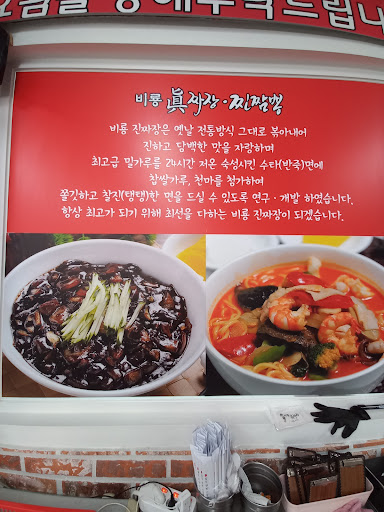 요금을 선불로 부탁드립니
비룡 眞짜장·찐짬뽕
비룡 진짜장은 옛날 전통방식 그대로 볶아내어
진하고 담백한 맛을 자랑하며
최고급 밀가루를 24시간 저온 숙성시킨 수타(반죽)면에
찹쌀가루, 천마를 첨가하여
쫄깃하고 찰진(탱탱)한 면을 드실 수 있도록 연구·개발 하였습니다.
항상 최고가 되기 위해 최선을 다하는 비룡 진짜장이 되겠습니다.